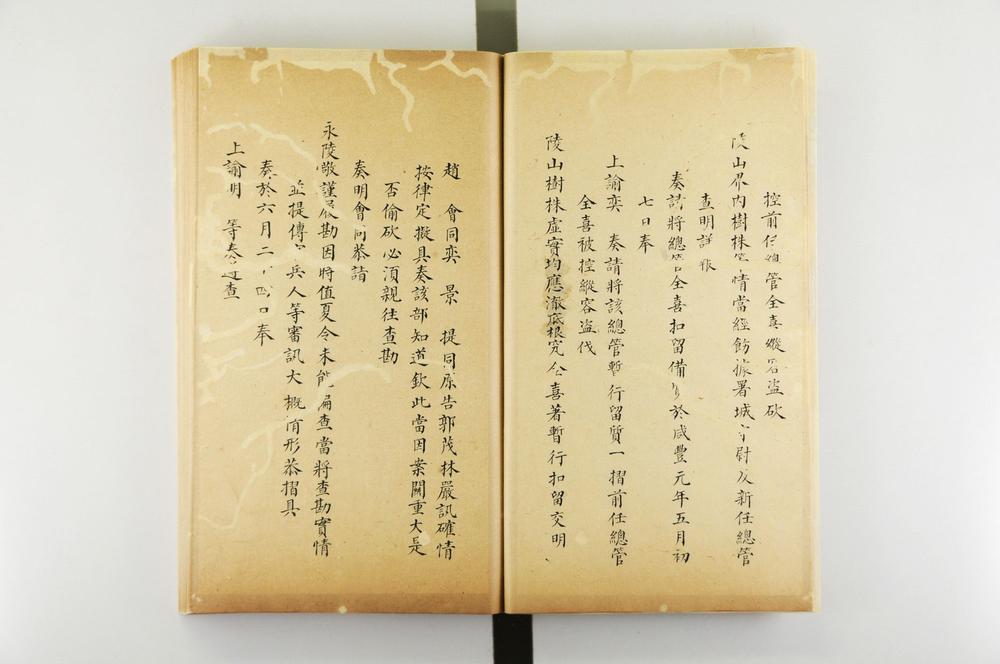 控前任總管全喜縱容盜砍
陵山界內樹株等情當經飭據署城守尉及新任總管
查明詳報
奏請將總管全喜扣留備質於咸豐元年五月初
七日奉
上諭奕　奏請將該總管暫行留質一摺前任總管
全喜被控縱容盜伐
陵山樹株虛實均應澈底根究全喜著暫行扣留交明
趙　會同奕　景　提同原告郭茂林嚴訊確情
按律定擬具奏該部知道欽此當因案關重大是
否偷砍必須親往查勘
奏明會同恭詣
永陵敬謹履勘因時值夏令未能扁查當將查勘實情
並提傳　兵人等審訊大概情形恭摺具
奏於六月二十四日奉
上諭明　等奏　查